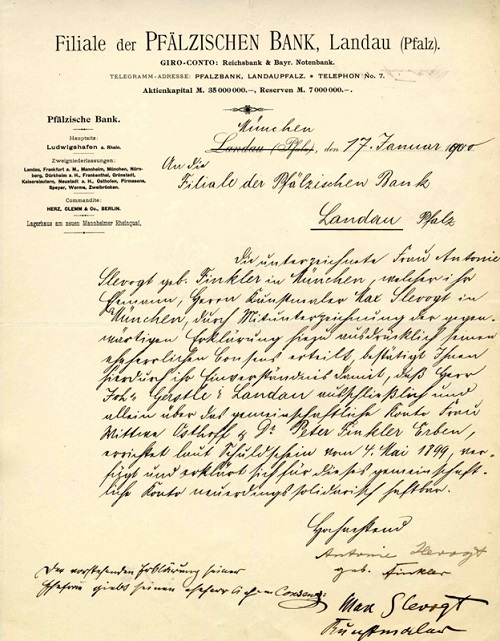 Filiale der PFÄLZISCHEN BANK, Landau (Pfalz).
GIRO-CONTO: Reichsbank & Bayr. Notenbank.
TELEGRAMM-ADRESSE: PFALZBANK, LANDAUPFALZ. • TELEPHON No. 7.
Aktienkapital M. 35 000 000.—, Reserven M. 7 000 000.—.
Pfälzische Bank.
Hauptsitz:
Ludwigshafen a. Rhein.
Zweigniederlassungen:
Landau, Frankfurt a. M., Mannheim, München, Nürn-
berg, Dürkheim a. H., Frankenthal, Grünstadt,
Kaiserslautern, Neustadt a. H., Osthofen, Pirmasens,
Speyer, Worms, Zweibrücken.
Commandite:
HERZ, CLEMM & Co., BERLIN.
Lagerhaus am neuen Mannheimer Rheinquai.
München
Landau (Pfalz), den 17. Januar 1900
An die
Filiale der Pfälzischen Bank
Landau Pfalz
Die unterzeichnete Frau Antonie
Slevogt geb. Finkler in München, welcher ihr
Ehemann, Herrn Kunstmaler Max Slevogt in
München, durch Mitunterzeichnung der gegen-
wärtigen Erklärung hiezu ausdrücklich seinen
eheherrlichen Consens erteilt, bestätigt Ihnen
hierdurch ihr Einverständnis damit, daß Herr
Joh. Gerstle i. Landau ausschließlich und
allein über das gemeinschaftliche Konto Frau
Wittwe Osthoff & Dr. Peter Finkler Erben,
errichtet laut Schuldschein vom 4. Mai 1899, ver-
fügt und erklärt sich für dieses gemeinschaft-
liche Konto neuerdings solidarisch haftbar.
Hochachtend
Antonie Slevogt
geb. Finkler
Der vorstehenden Erklärung seiner
Ehefrau giebt seinen eheherrlichen Consens:
Max Slevogt
Kunstmaler